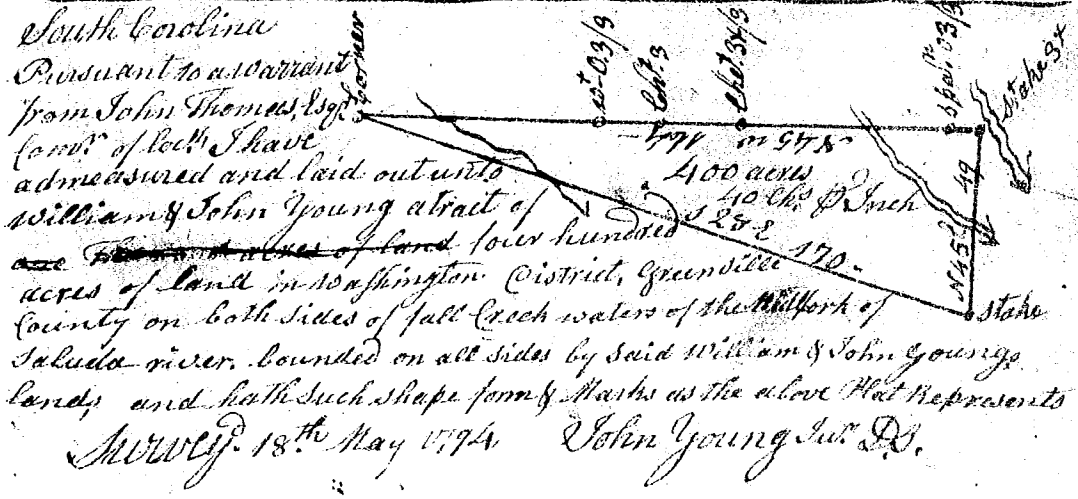 South Carolina
Pursuant to a warrant
from John Thomas, Esqr
Comr of Locn I have
admeasured and laid out unto
William & John Young a tract of
one Thousand acres of land four hundred
acres of land in Washington District, Greenville
County on both sides of fall Creek waters of the Midfork of
Saluda river. bounded on all sides by said William & John Youngs
lands, and hath such shape form & Marks as the above Plat Represents
Surveyd 18th May 1794 John Young Junr D.S.
Corner
Wt O. 3/3
Cht 3
Cht 3X/3
Stake 3x
S 45 W 164
400 acres
40 Chs Inch
S 25 E 170
N 45 49
Stake